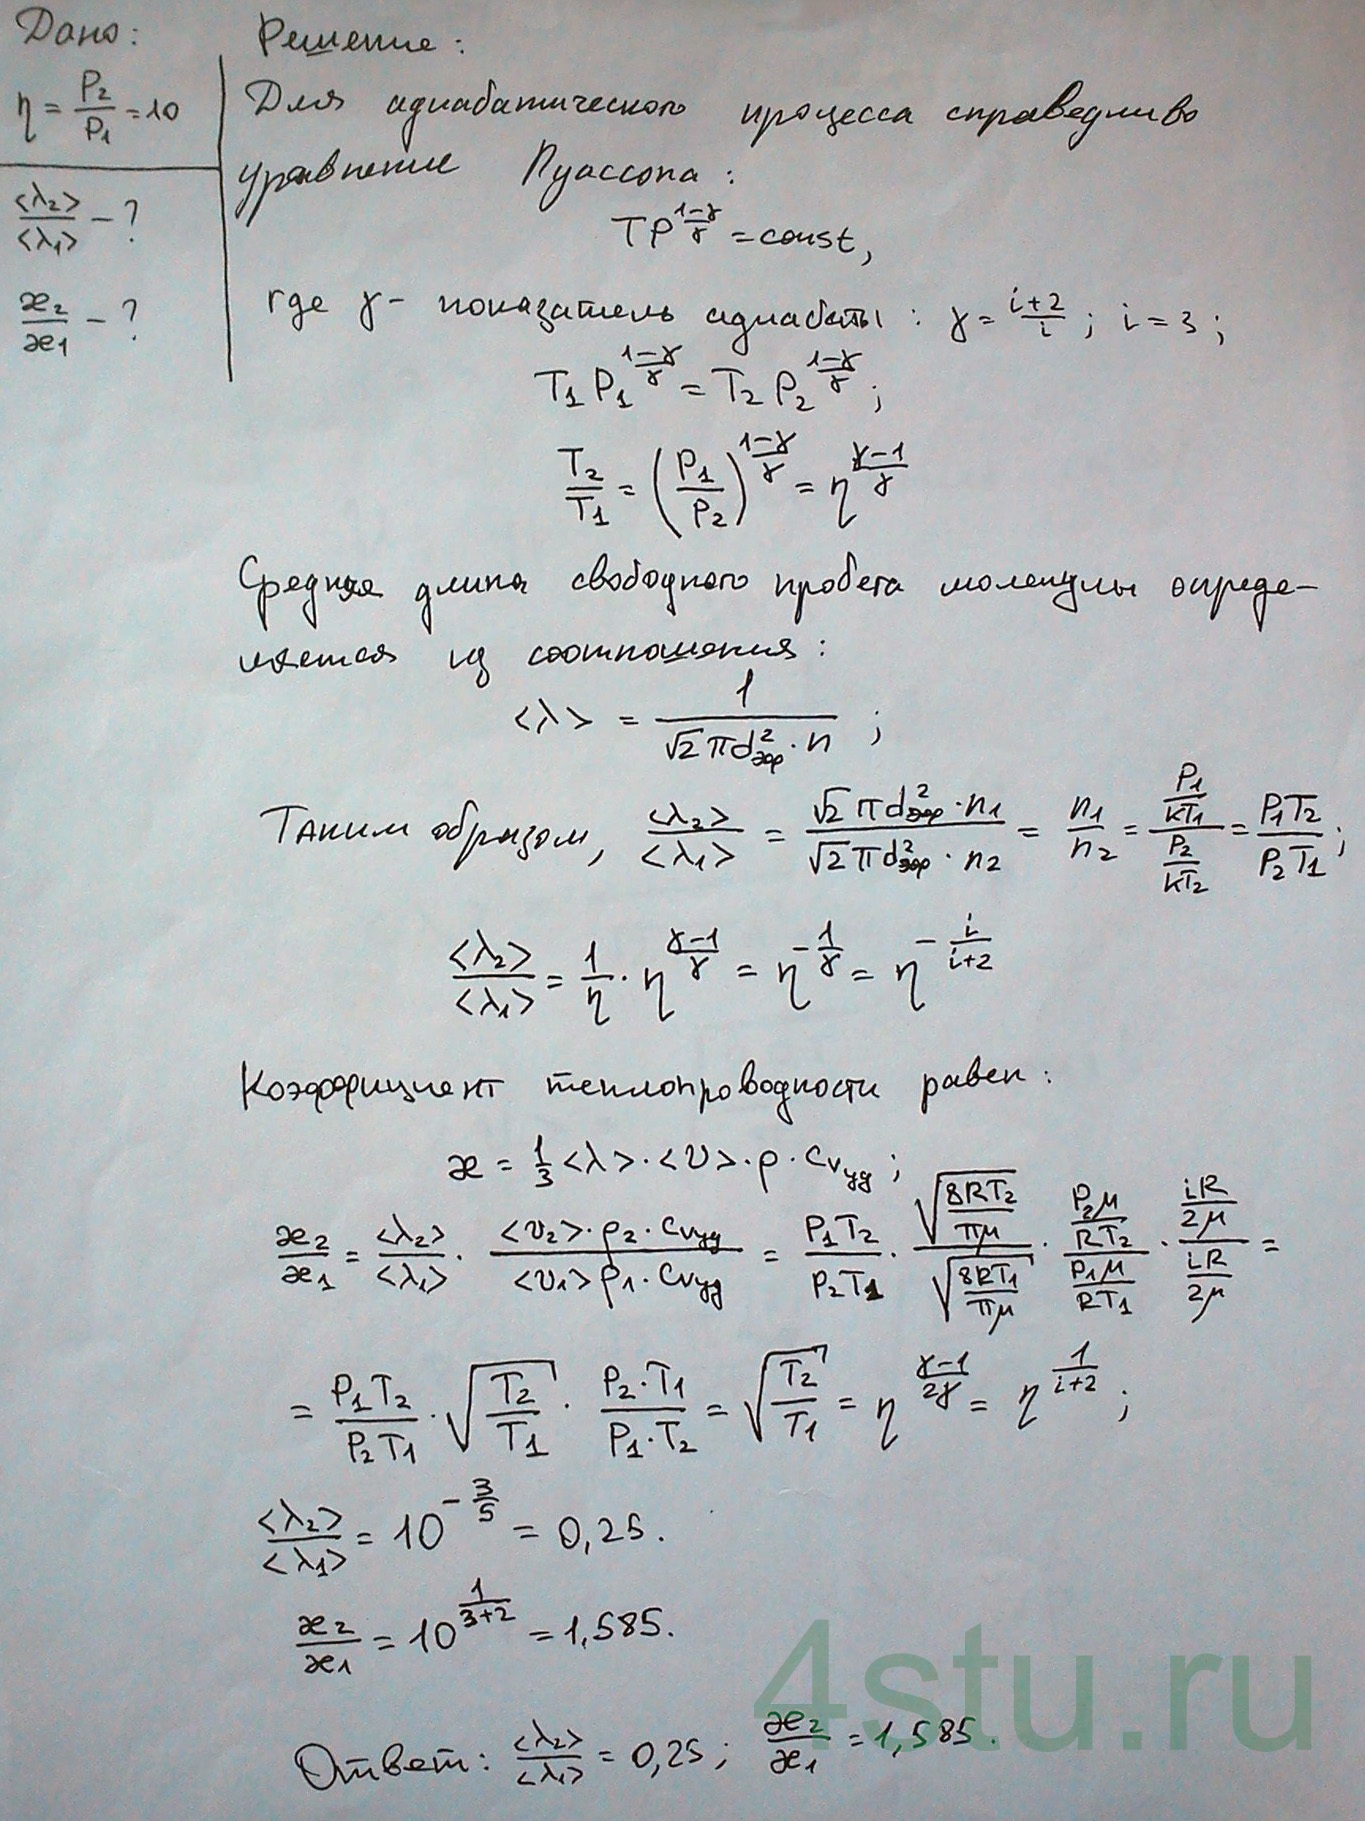 Дано:
η = P₂/P₁ = 10
<λ₂>/<λ₁> – ?
æ₂/æ₁ – ?
Решение:
Для адиабатического процесса справедливо
уравнение Пуассона:
TP^((1-γ)/γ) = const,
где γ - показатель адиабаты: γ = (i+2)/i ; i = 3 ;
T₁P₁^((1-γ)/γ) = T₂P₂^((1-γ)/γ) ;
T₂/T₁ = (P₁/P₂)^((1-γ)/γ) = η^((γ-1)/γ)
Средняя длина свободного пробега молекулы опреде-
ляется из соотношения:
<λ> = 1/(√2 πd²эф · n) ;
Таким образом, <λ₂>/<λ₁> = (√2 πd²эф · n₁)/(√2 πd²эф · n₂) = n₁/n₂ = (P₁/kT₁)/(P₂/kT₂) = P₁T₂/P₂T₁ ;
<λ₂>/<λ₁> = 1/η · η^((γ-1)/γ) = η^(-1/γ) = η^(-i/(i+2))
Коэффициент теплопроводности равен:
æ = 1/3 <λ> · <υ> · ρ · Cvуд ;
æ₂/æ₁ = <λ₂>/<λ₁> · (<υ₂> · ρ₂ · Cvуд)/(<υ₁> ρ₁ · Cvуд) = P₁T₂/P₂T₁ · √(8RT₂/πμ)/√(8RT₁/πμ) · (P₂μ/RT₂)/(P₁μ/RT₁) · (iR/2μ)/(iR/2μ) =
= P₁T₂/P₂T₁ · √(T₂/T₁) · (P₂·T₁)/(P₁·T₂) = √(T₂/T₁) = η^((γ-1)/2γ) = η^(1/(i+2)) ;
<λ₂>/<λ₁> = 10^(-3/5) = 0,25.
æ₂/æ₁ = 10^(1/(3+2)) = 1,585.
Ответ: <λ₂>/<λ₁> = 0,25 ; æ₂/æ₁ = 1,585.
4stu.ru